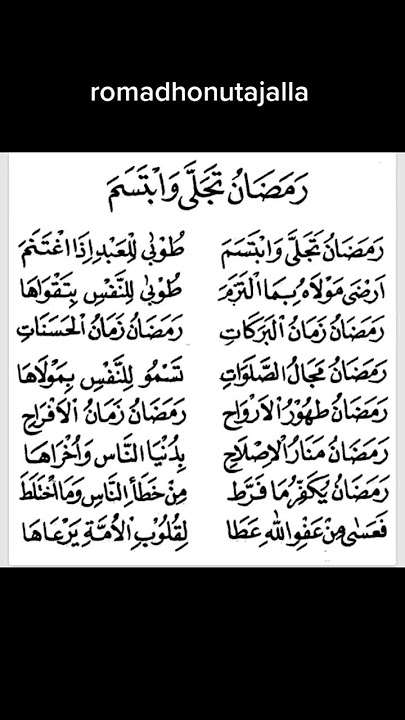 romadhonutajalla
رَمَضَانُ تَجَلَّى وَابْتَسَمَ
رَمَضَانُ تَجَلَّى وَابْتَسَمَ طُوْبٰى لِلْعَبْدِ اِذَا اغْتَنَمَ
اَرْضٰى مَوْلَاهُ بِمَا الْتَزَمَ طُوْبٰى لِلنَّفْسِ بِتَقْوَاهَا
رَمَضَانُ زَمَانُ الْبَرَكَاتِ رَمَضَانُ زَمَانُ الْحَسَنَاتِ
رَمَضَانُ مَجَالُ الصَّلَوَاتِ تَسْمُو لِلنَّفْسِ بِمَوْلَاهَا
رَمَضَانُ طَهُوْرُ الْاَرْوَاحِ رَمَضَانُ زَمَانُ الْاَفْرَاحِ
رَمَضَانُ مَنَارُ الْاِصْلَاحِ بِدُنْيَا النَّاسِ وَاُخْرَاهَا
رَمَضَانُ يُكَفِّرُ مَا فَرَّطَ مِنْ خَطَأِ النَّاسِ وَمَا اخْتَلَطَ
فَعَسٰى مِنْ عَفْوِ اللهِ عَطَا لِقُلُوْبِ الْاُمَّةِ يَرْعَاهَا